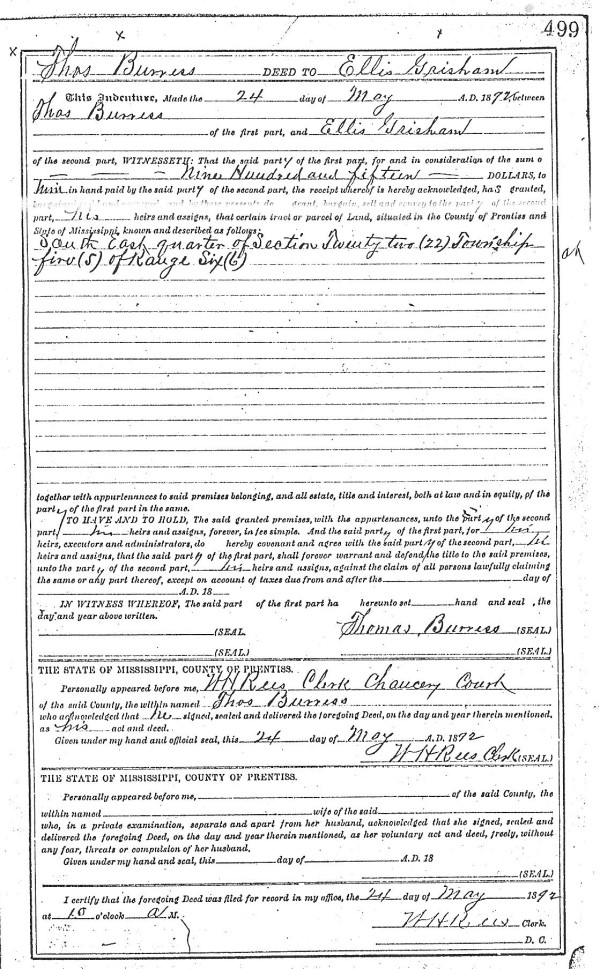 499
Thos Burress DEED TO Ellis Grisham
This Indenture, Made the 24 day of May A.D. 1892, between
Thos Burress
of the first part, and Ellis Grisham
of the second part, WITNESSETH: That the said party of the first part, for and in consideration of the sum o
Nine Hundred and fifteen DOLLARS, to
him in hand paid by the said party of the second part, the receipt whereof is hereby acknowledged, has granted,
grant, bargain, sell and convey to the party of the second
part, his heirs and assigns, that certain tract or parcel of Land, situated in the County of Prentiss and
State of Mississippi, known and described as follows:
South East quarter of Section Twenty two (22) Township
five (5) of Range Six (6)
together with appurtenances to said premises belonging, and all estate, title and interest, both at law and in equity, of the
party of the first part in the same.
TO HAVE AND TO HOLD, The said granted premises, with the appurtenances, unto the party of the second
part, his heirs and assigns, forever, in fee simple. And the said party of the first part, for his
heirs, executors and administrators, do hereby covenant and agree with the said party of the second part, his
heirs and assigns, that the said party of the first part, shall forever warrant and defend the title to the said premises,
unto the party of the second part, his heirs and assigns, against the claim of all persons lawfully claiming
the same or any part thereof, except on account of taxes due from and after the day of
A.D. 18
IN WITNESS WHEREOF, The said part of the first part ha hereunto set hand and seal , the
day and year above written.
(SEAL. Thomas Burress (SEAL.)
(SEAL. (SEAL.)
THE STATE OF MISSISSIPPI, COUNTY OF PRENTISS.
Personally appeared before me, W H Rees Clerk Chancery Court
of the said County, the within named Thos Burress
who acknowledged that he signed, sealed and delivered the foregoing Deed, on the day and year therein mentioned,
as his act and deed.
Given under my hand and official seal, this 24 day of May A.D. 1892
W H Rees Clerk (SEAL.)
THE STATE OF MISSISSIPPI, COUNTY OF PRENTISS.
Personally appeared before me, of the said County, the
within named wife of the said
who, in a private examination, separate and apart from her husband, acknowledged that she signed, sealed and
delivered the foregoing Deed, on the day and year therein mentioned, as her voluntary act and deed, freely, without
any fear, threats or compulsion of her husband.
Given under my hand and seal, this day of A.D. 18
(SEAL.)
I certify that the foregoing Deed was filed for record in my office, the 24 day of May 1892
at 10 o'clock A M.
W H Rees Clerk.
D. C.